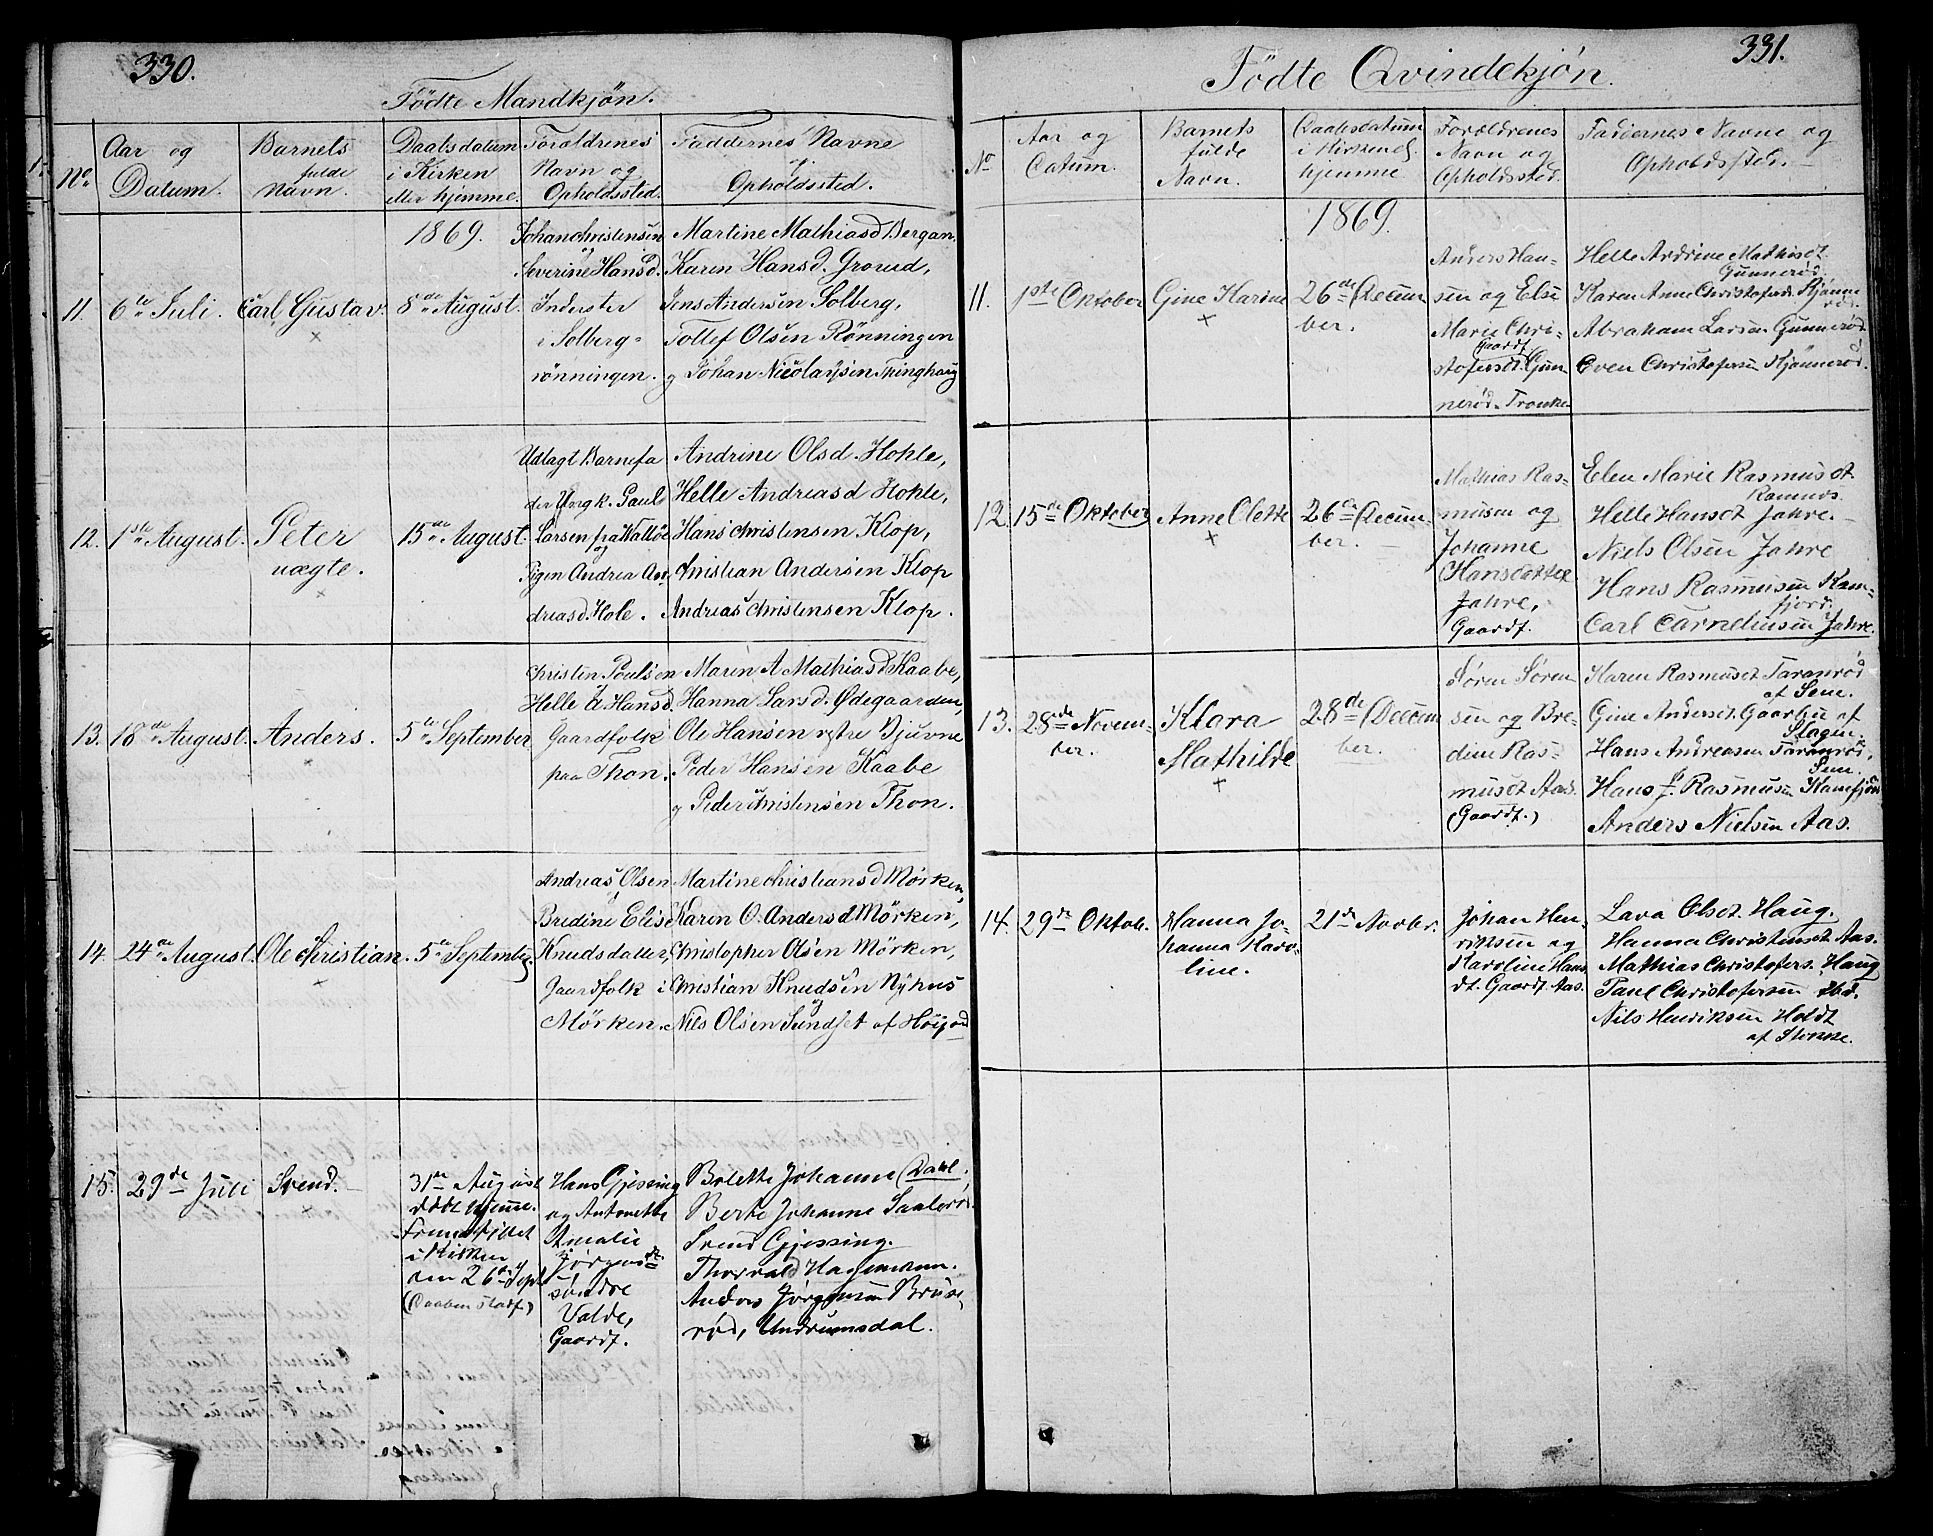 330.
Födte Mandkjön.
No.
Aar og
Datum.
Barnets
fulde
Navn.
Daabsdatum
i Kirken
eller hjemme.
Foraldrenes
Navn og
Opholdssted.
Faddernes Navne
og
Opholdssted.
1869.
11.
6te Juli.
Carl Gustav.
8de August.
Johan Christensen
og
Severine Hansd.
Inderster
i Solberg-
rönningen.
Martine Mathiasd Bergan,
Karen Hansd. Grorud,
Jens Andersen Solberg,
Tollef Olsen Rönningen
og Johan Nicolaysen Thinghaug
12.
1ste August.
Peter
uægte.
15de August.
Udlagt Barnefa
der Ungk. Paul
Larsen fra
og
Pigen Andrea An
dreasd. Hole.
Andrine Olsd. Hohle,
Helle Andreasd Hohle,
Hans Christensen Klop,
Christian Andersen Klop
Andreas Christensen Klop.
13.
18de August.
Anders.
5te September
Christen Poulsen
Helle A. Hansd.
Gaardfolk
paa Thon.
Maren A Mathiasd Kaabe,
Hanna Larsd. Ødegaarden,
Ole Hansen vestre Bjuvne
Peder Hansen Kaabe
og Peder Christensen Thon.
14.
24de August.
Ole Christian.
5te September
Andreas Olsen
Bredine Elise
Knudsdatter,
Gaardfolk i
Mørken.
Martine Christiansd Mørken,
Karen O. Andersd Mørken,
Christopher Olsen Mørken,
Christian Knudsen Nyhus
og
Nils Olsen Sundset af Höijord
15.
29de Juli
Svend.
31te August
døbt hjemme.
Fremstillet
i Kirken
den 26de Sept
(Daaben stadf.)
Hans Gjessing
og Antonette
Amalie
Jørgensdt.
søndre
Valde,
Gaardf.
Bolette Johanne Dahl,
Berte Johanne
Svend Gjessing.
Thorvald Hagemann.
Anders Jørgensen Bruse-
rød, Undrumsdal.
331.
Födte Qvindekjön.
No
Aar og
Datum.
Barnets
fulde
Navn.
Daabsdatum
i Kirken el.
hjemme
Forældrenes
Navn og
Opholdssted.
Faddernes Navne og
Opholdssted.
1869.
11.
1ste Oktober
Gine Karine
26de Decem
ber.
Anders Han-
sen og Else
Marie Chri-
Gaardf.
stofersdt. Gun
nerød.
Helle Andrine Mathisdt
Gunnerød.
Karen Anne Christofersdt. Kjønne
rød.
Abraham Larsen Gunnerød.
Even Christofersen Kjønnerød.
12.
15de Oktober
Anne Olette
26de Decem
ber.
Mathias Ras-
musen og
Johanne
Hansdatter
Jahre,
Gaardf.
Elen Marie Rasmusdt.
Helle Hansdt Jahre.
Niels Olsen Jahre
Hans Rasmusen Ram-
fjord.
Carl Corneliussen Jahre.
13.
28de Novem-
ber.
Klara
Mathilde
28de Decem
ber.
Søren Søren
sen og Bre-
dine Ras-
musdt Aas.
(Gaardf.)
Karen Rasmusdt Taranrød
af Sem.
Gine Andersdt. Gaarbu af
Slagen.
Hans Andreasen Taranrød,
Sem.
Hans J. Rasmusen Ramfjord
Anders Nielsen Aas.
14.
29de Oktob.
Hanna Jo-
hanna Karo-
line.
21de Novbr.
Johan Hen-
riksen og
Karoline Hans
dt. Gaardf. Aas.
Lava Olsdt. Haug.
Hanna Christensdt Aas.
Mathias Christofers. Haug
Paul Christofersen Ibd.
Nils Henriksen Holdt
af Stokke.